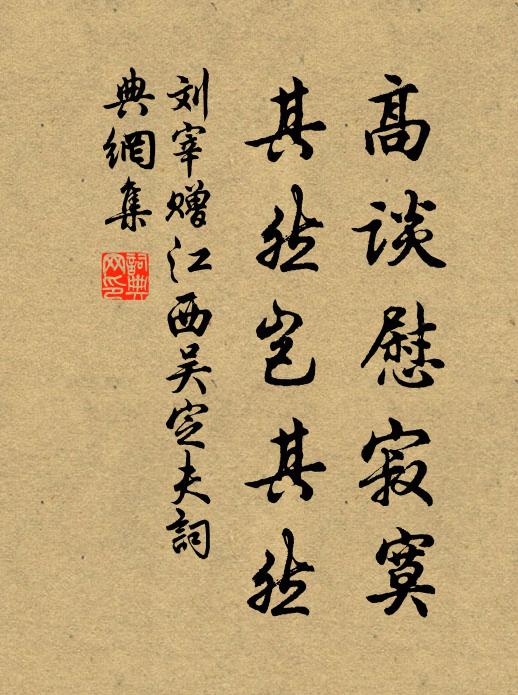 高谈慰寂寞
其然岂其然
刘宰赠江西吴定夫詞
典網集
詞典网印